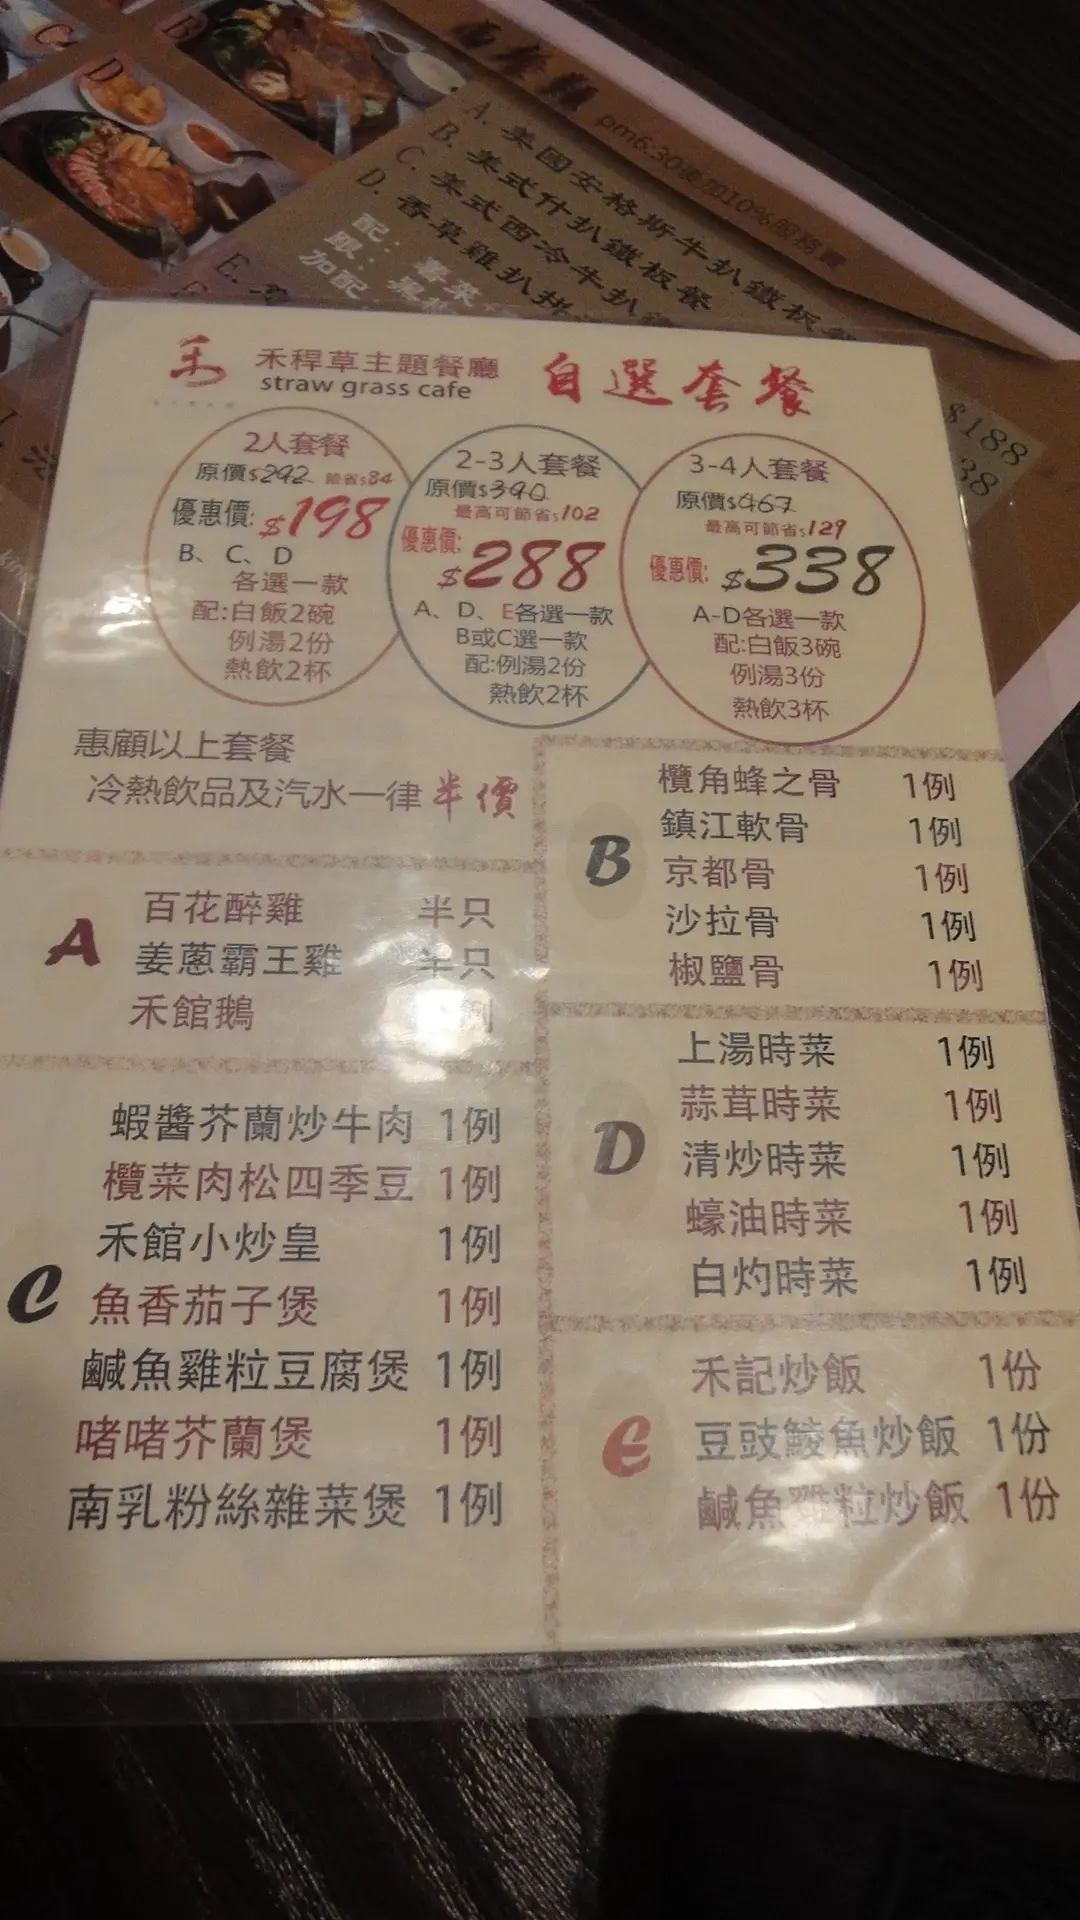 pm6:30後加10%服務費
A. 美國安格斯牛扒鐵板餐
B. 美式什扒鐵板餐
C. 美式西冷牛扒
D. 香草雞扒拼
配:
跟:
加配
E.
$188
38
禾稈草主題餐廳
straw grass cafe
自選套餐
2人套餐
原價$292 節省$84
優惠價: $198
B、C、D
各選一款
配:白飯2碗
例湯2份
熱飲2杯
2-3人套餐
原價$390
最高可節省$102
優惠價: $288
A、D、E各選一款
B或C選一款
配:例湯2份
熱飲2杯
3-4人套餐
原價$467
最高可節省$129
優惠價: $338
A-D各選一款
配:白飯3碗
例湯3份
熱飲3杯
惠顧以上套餐
冷熱飲品及汽水一律半價
A
百花醉雞 半只
姜蔥霸王雞 半只
禾館鵝 例
B
欖角蜂之骨 1例
鎮江軟骨 1例
京都骨 1例
沙拉骨 1例
椒鹽骨 1例
C
蝦醬芥蘭炒牛肉 1例
欖菜肉松四季豆 1例
禾館小炒皇 1例
魚香茄子煲 1例
鹹魚雞粒豆腐煲 1例
啫啫芥蘭煲 1例
南乳粉絲雜菜煲 1例
D
上湯時菜 1例
蒜茸時菜 1例
清炒時菜 1例
蠔油時菜 1例
白灼時菜 1例
E
禾記炒飯 1份
豆豉鯪魚炒飯 1份
鹹魚雞粒炒飯 1份